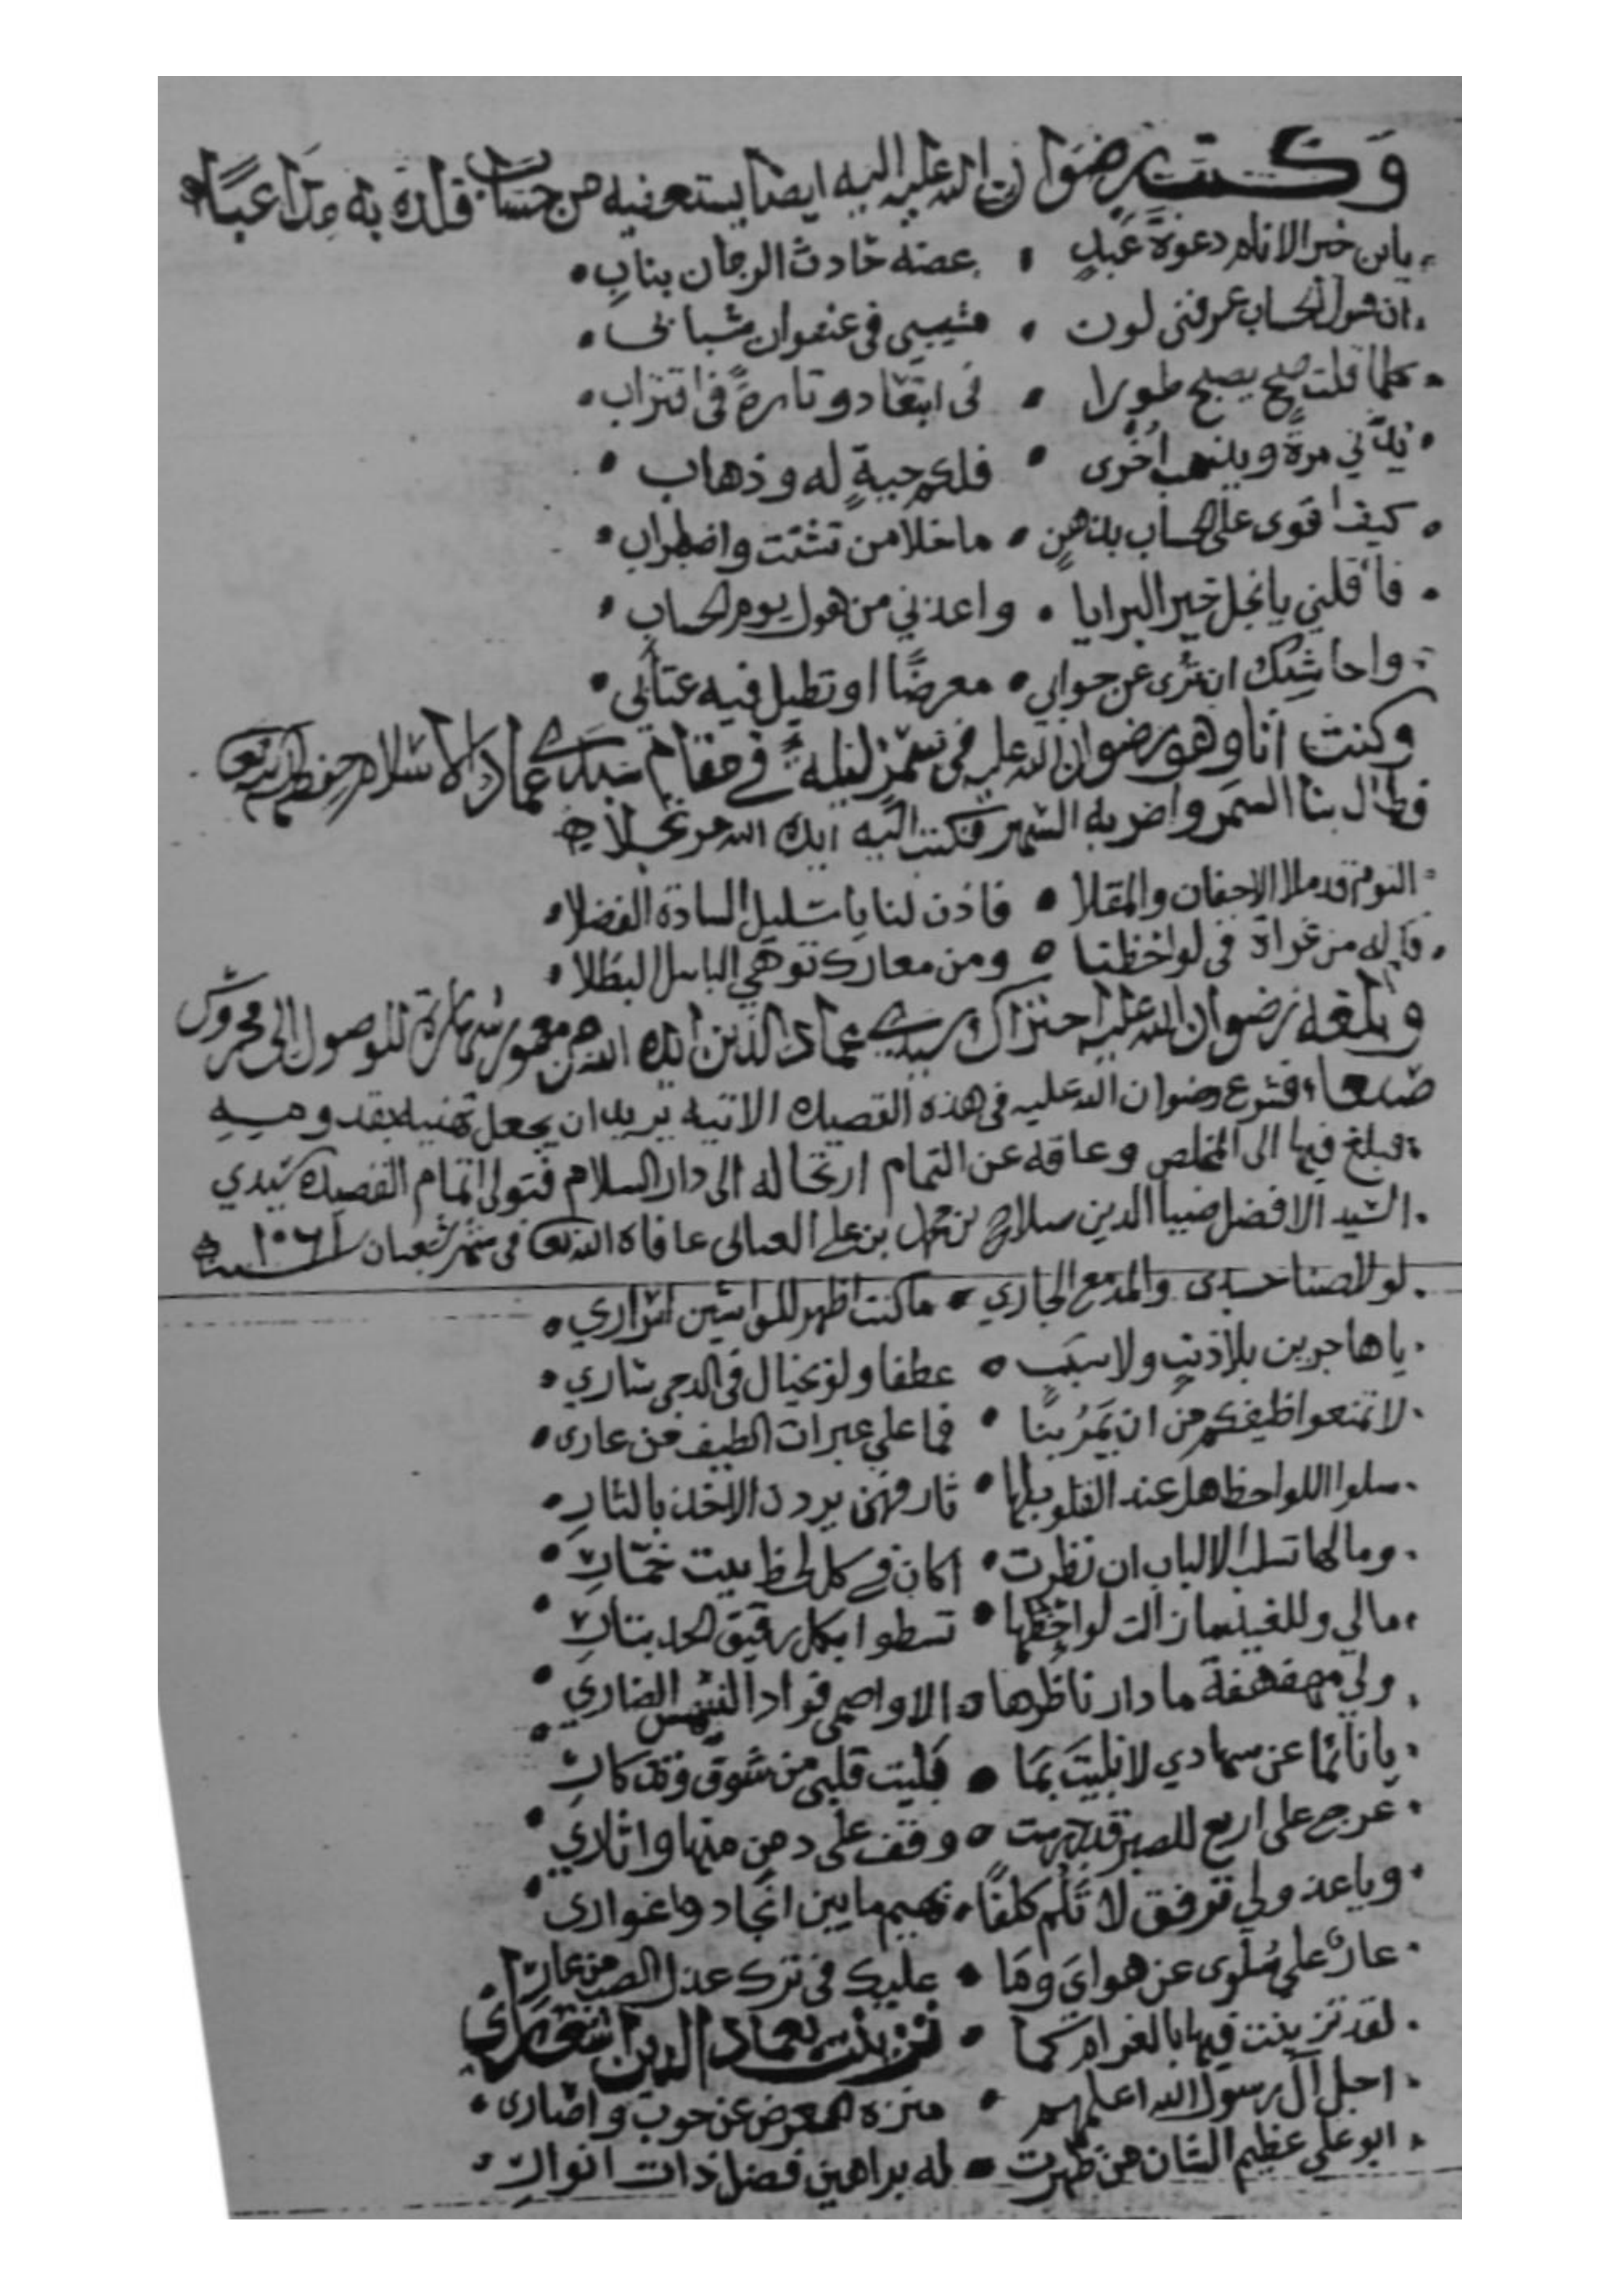 وكتب رضوان الله عليه اليه ايضا يستعفيه من حساب قلده به مداعبا
يابن خير الانام دعوة عبد عضه حادث الزمان بناب
ان هول الحساب عرفني لون مشيبي في عنفوان شبابي
كلما قلت صح يصبح طورا في ابتعاد وتارة في اقتراب
ياتي مرة ويذهب اخرى فلكم جيبة له وذهاب
كيف اقوى على الحساب بذهن ما خلا من تشتت واضطراب
فاقلني يا نجل خير البرايا واعذني من هول يوم الحساب
واحاشيك ان ترى عن جوابي معرضا او تطيل فيه عتابي
وكنت انا وهو رضوان الله عليه في سمر ليلة في مقام سيدي عماد الاسلام حفظه الله تعالى
فطال بنا السمر واضر به السهر فكتب اليه ايده الله مرتجلا
النوم قد ملا الاجفان والمقلا فاذن لنا يا سليل السادة الفضلا
فاله من غراة في لواحظنا ومن معارك توهي الباسل البطلا
وبلغه رضوان الله عليه احتراك سيدي عماد الدين ايده الله من معمور شهارة للوصول الى محروس
صنعاء فشرع رضوان الله عليه في هذه القصيدة الاتيه يريد ان يجعل تهنيه بقدومه
فبلغ فيها الى المخلص وعاقه عن التمام ارتحاله الى دار السلام فتولى اتمام القصيدة سيدي
السيد الافضل ضيا الدين صلاح بن محمد بن علي العبالي عافاه الله تعالى في شهر شعبان سنة ١٠٦١
لولا ضنا جسدي والمدمع الجاري ما كنت اظهر للواشين اسراري
يا هاجرين بلا ذنب ولا سبب عطفا ولو بخيال في الدجى ساري
لا تمنعوا طيفكم من ان يمر بنا فما على عبرات الطيف من عاري
سلوا اللواحظ هل عند القلوب لها ثار فهن يردن الاخذ بالثار
وما لها تسلب الالباب ان نظرت اكان في كل لحظ بيت خمار
مالي وللغيد ما زالت لواحظها تسطوا بكل رقيق الحد بتار
ولي مهفهفة ما دار ناظرها الا واصمى فواد الشهم الضاري
يا نائما عن سهادي لا بليت بما بليت قلبي من شوق وتذكار
عرج على اربع للصبر قد وقف على دمن منها واثاري
ويا عذولي ترفق لا تلم كلفا يهيم ما بين انجاد واغواري
عار علي سلوى عن هواي وما عليك في ترك عذل الصب من عار
لقد تزينت فيها بالغرام كما تزينت بعماد الدين اشعاري
اجل ال رسول الله اعلمهم منزه العرض عن حوب واصاري
ابو علي عظيم الشان من ظهرت له براهين فضل ذات انوار